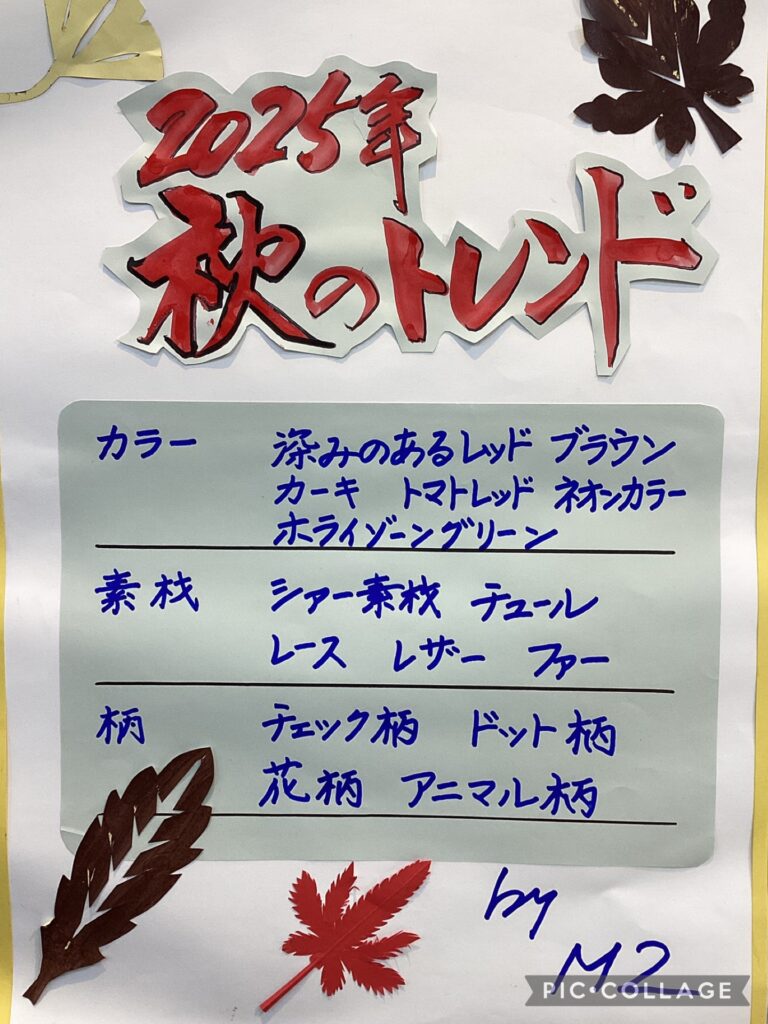 2025年
秋のトレンド
カラー 深みのあるレッド ブラウン
カーキ トマトレッド ネオンカラー
ホライゾーングリーン
素材 シアー素材 チュール
レース レザー ファー
柄 チェック柄 ドット柄
花柄 アニマル柄
by
M2
PIC•COLLAGE